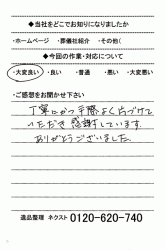 ◆当社をどこでお知りになりましたか
・ホームページ ・葬儀社紹介 ・その他(
◆今回の作業・対応について
・大変良い ・良い ・普通 ・悪い ・大変悪い
・ご感想をお聞かせ下さい
丁寧にかつ手際よく片づけて
いただき感謝しています。
ありがとうございました。
遺品整理 ネクスト 0120-620-740